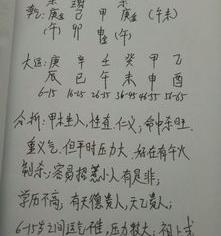 乾: 庚 己 甲 庚 (午未)
(午) 卯 申 (午)
大运: 庚 辛 壬 癸 甲 乙
辰 巳 午 未 申 酉
6-15 16-25 26-35 36-45 46-55 56-65
分析: 甲木生人, 性直仁义, 命中杀旺.
重义气, 但平时压力大, 好在有午火
制杀; 容易招惹小人有是非,
学历不高, 有天德贵人, 天乙贵人;
6-15岁之间运气性, 压力较大; 初上式